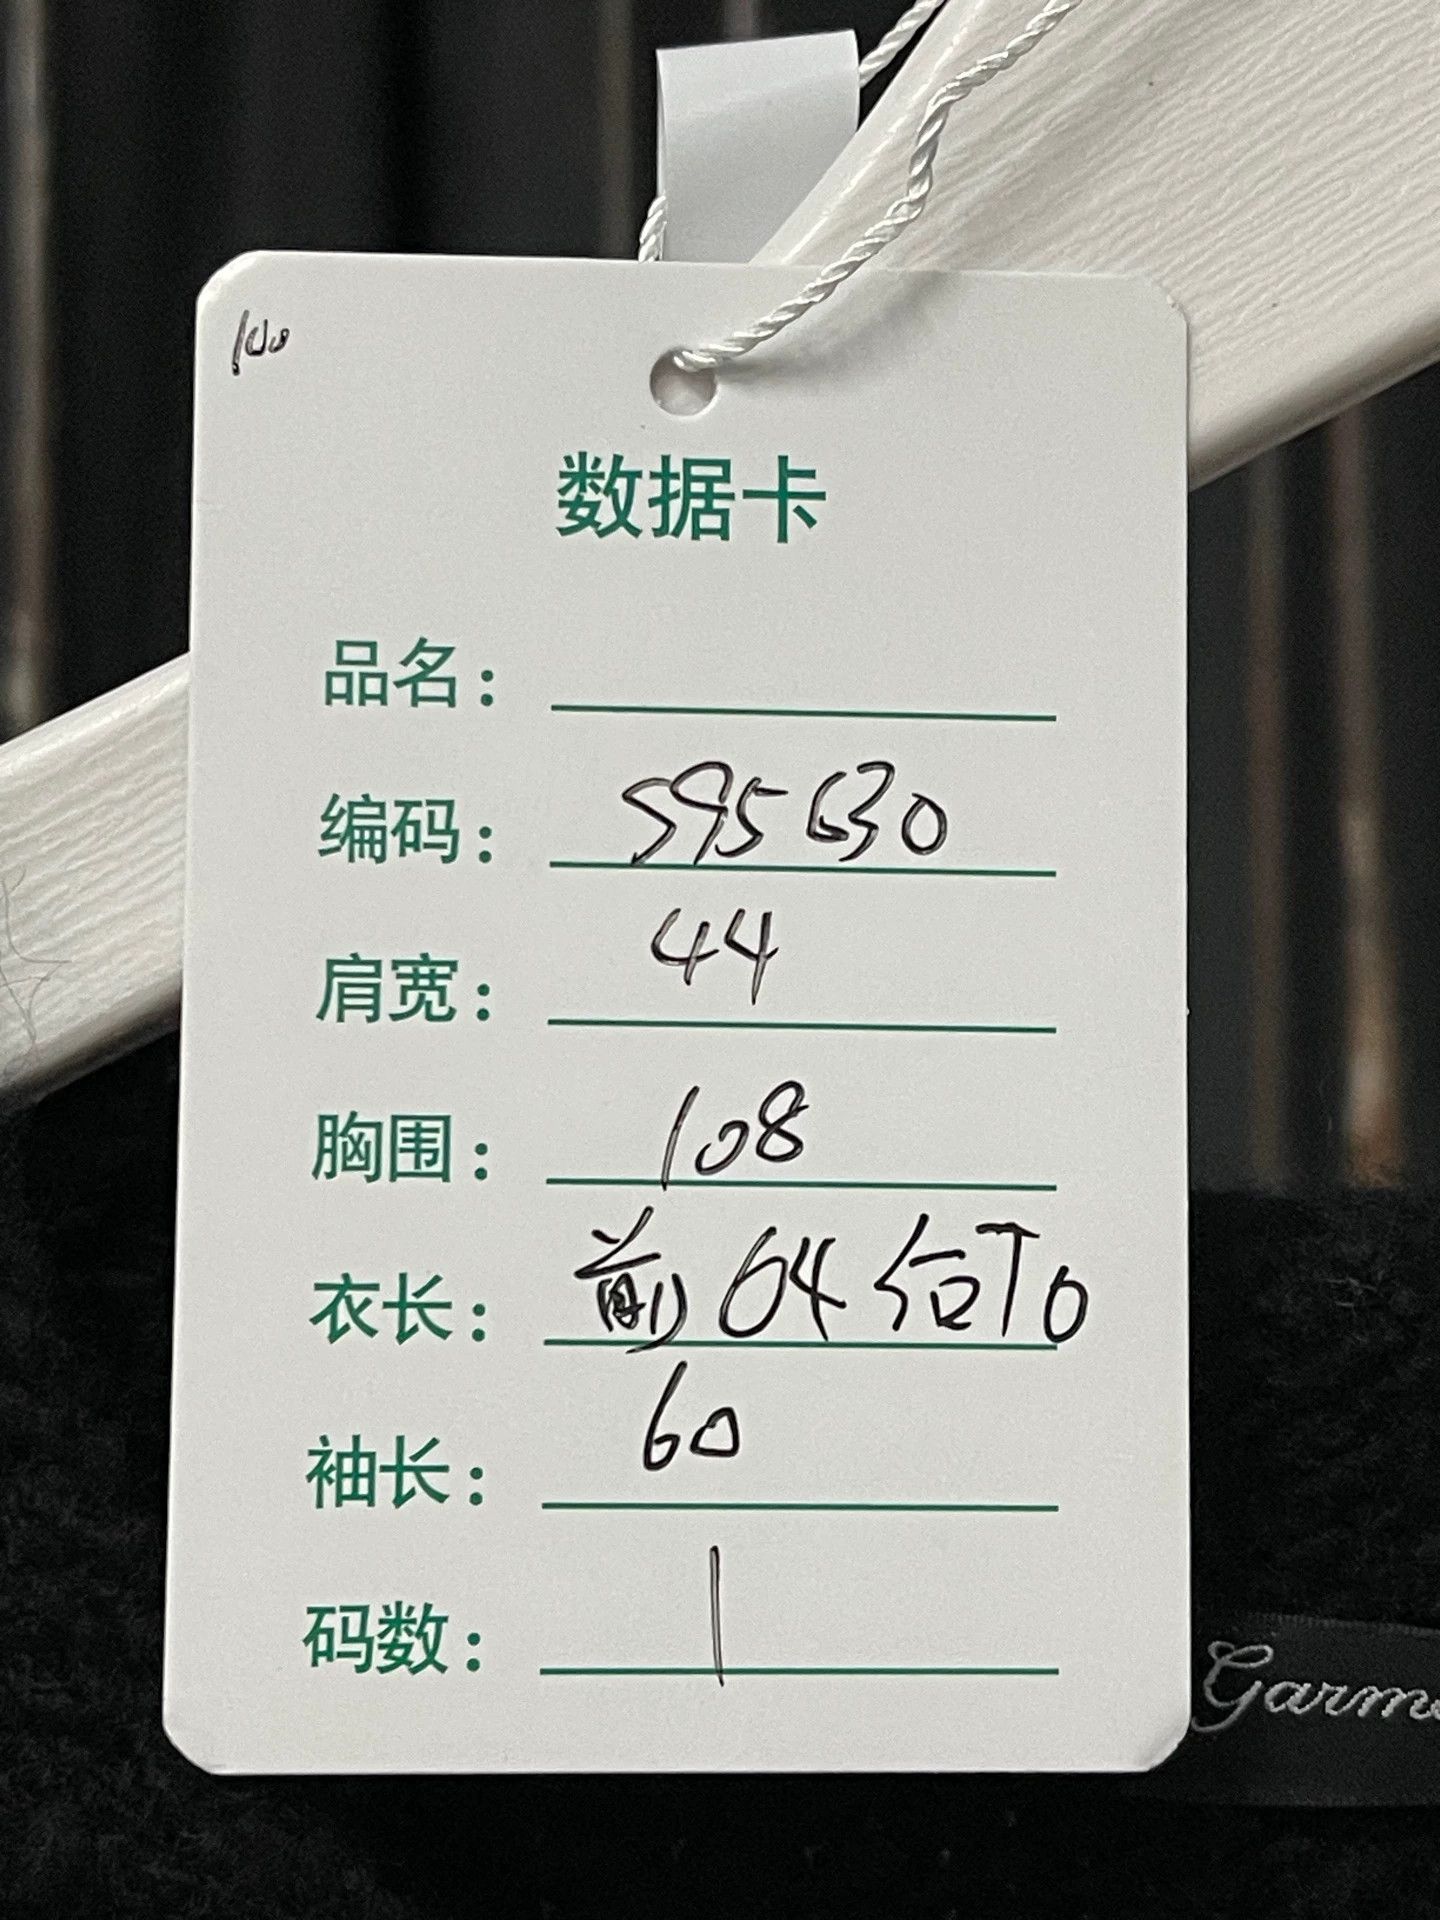 数据卡
品名：
编码： S95630
肩宽： 44
胸围： 108
衣长： 前64后70
袖长： 60
码数： 1
Garm